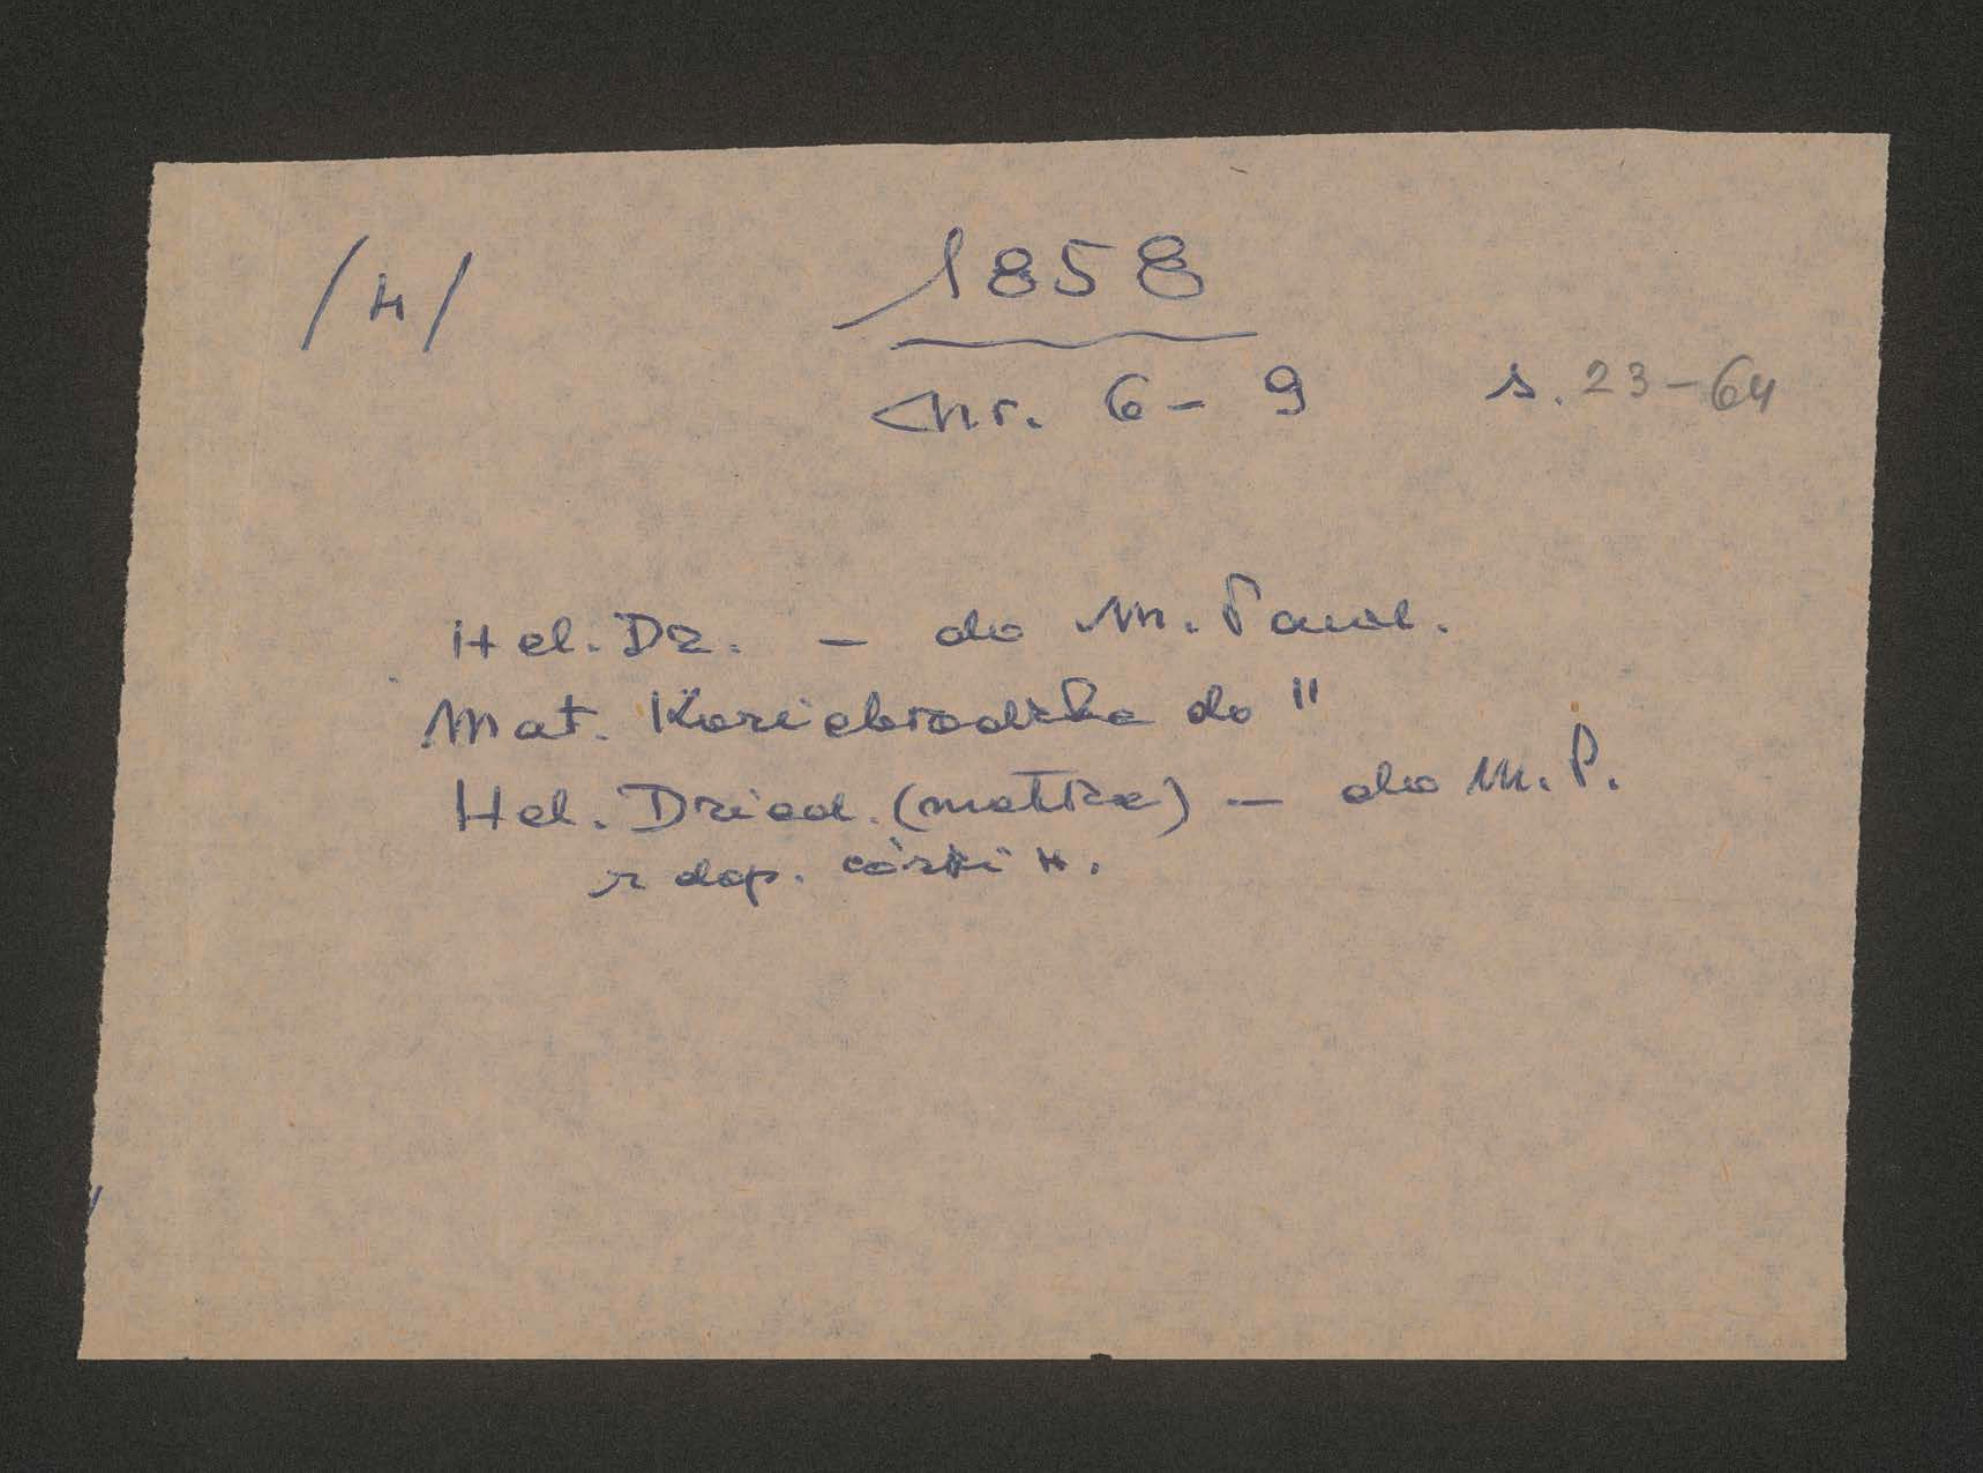 /H/ 1858
Chr. 6 - 9 s. 23-64
Hel. Dz. - do M. Pawl.
Mat. Koziebrodzka do "
Hel. Dzied. (matka) - do M. P.
z dop. córki H.